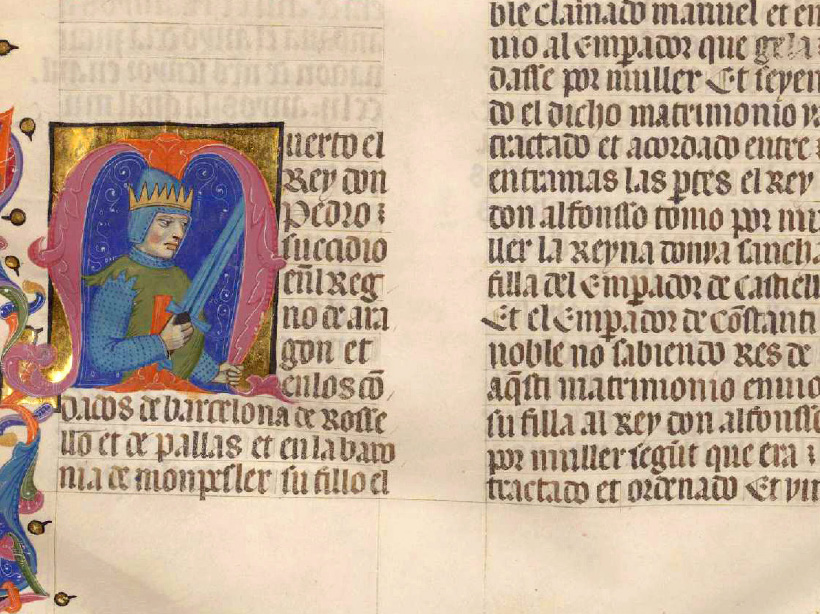 Muerto el
Rey don
Pedro ⁊
succidio
enl Reg
no de ara
gon et
en los cō
dados de barcelona de Rosse
llo et de pallas et en la baro
nia de monpesler su fillo el
ble clamado manuel et en
uio al Emperador que
dasse por muller Et seyen
do el dicho matrimonio
tractado et acordado entre
entramas las ptes el Rey
don alfonsso tomo por
ller la Reyna donya sancha
filla del Emperador de Castiell
Et el Emperador de Cōstanti
noble no sabiendo Res de
aq̄sti matrimonio enuio
su filla al Rey don alfonsso
por muller segūt que era
tractado et ordenado Et